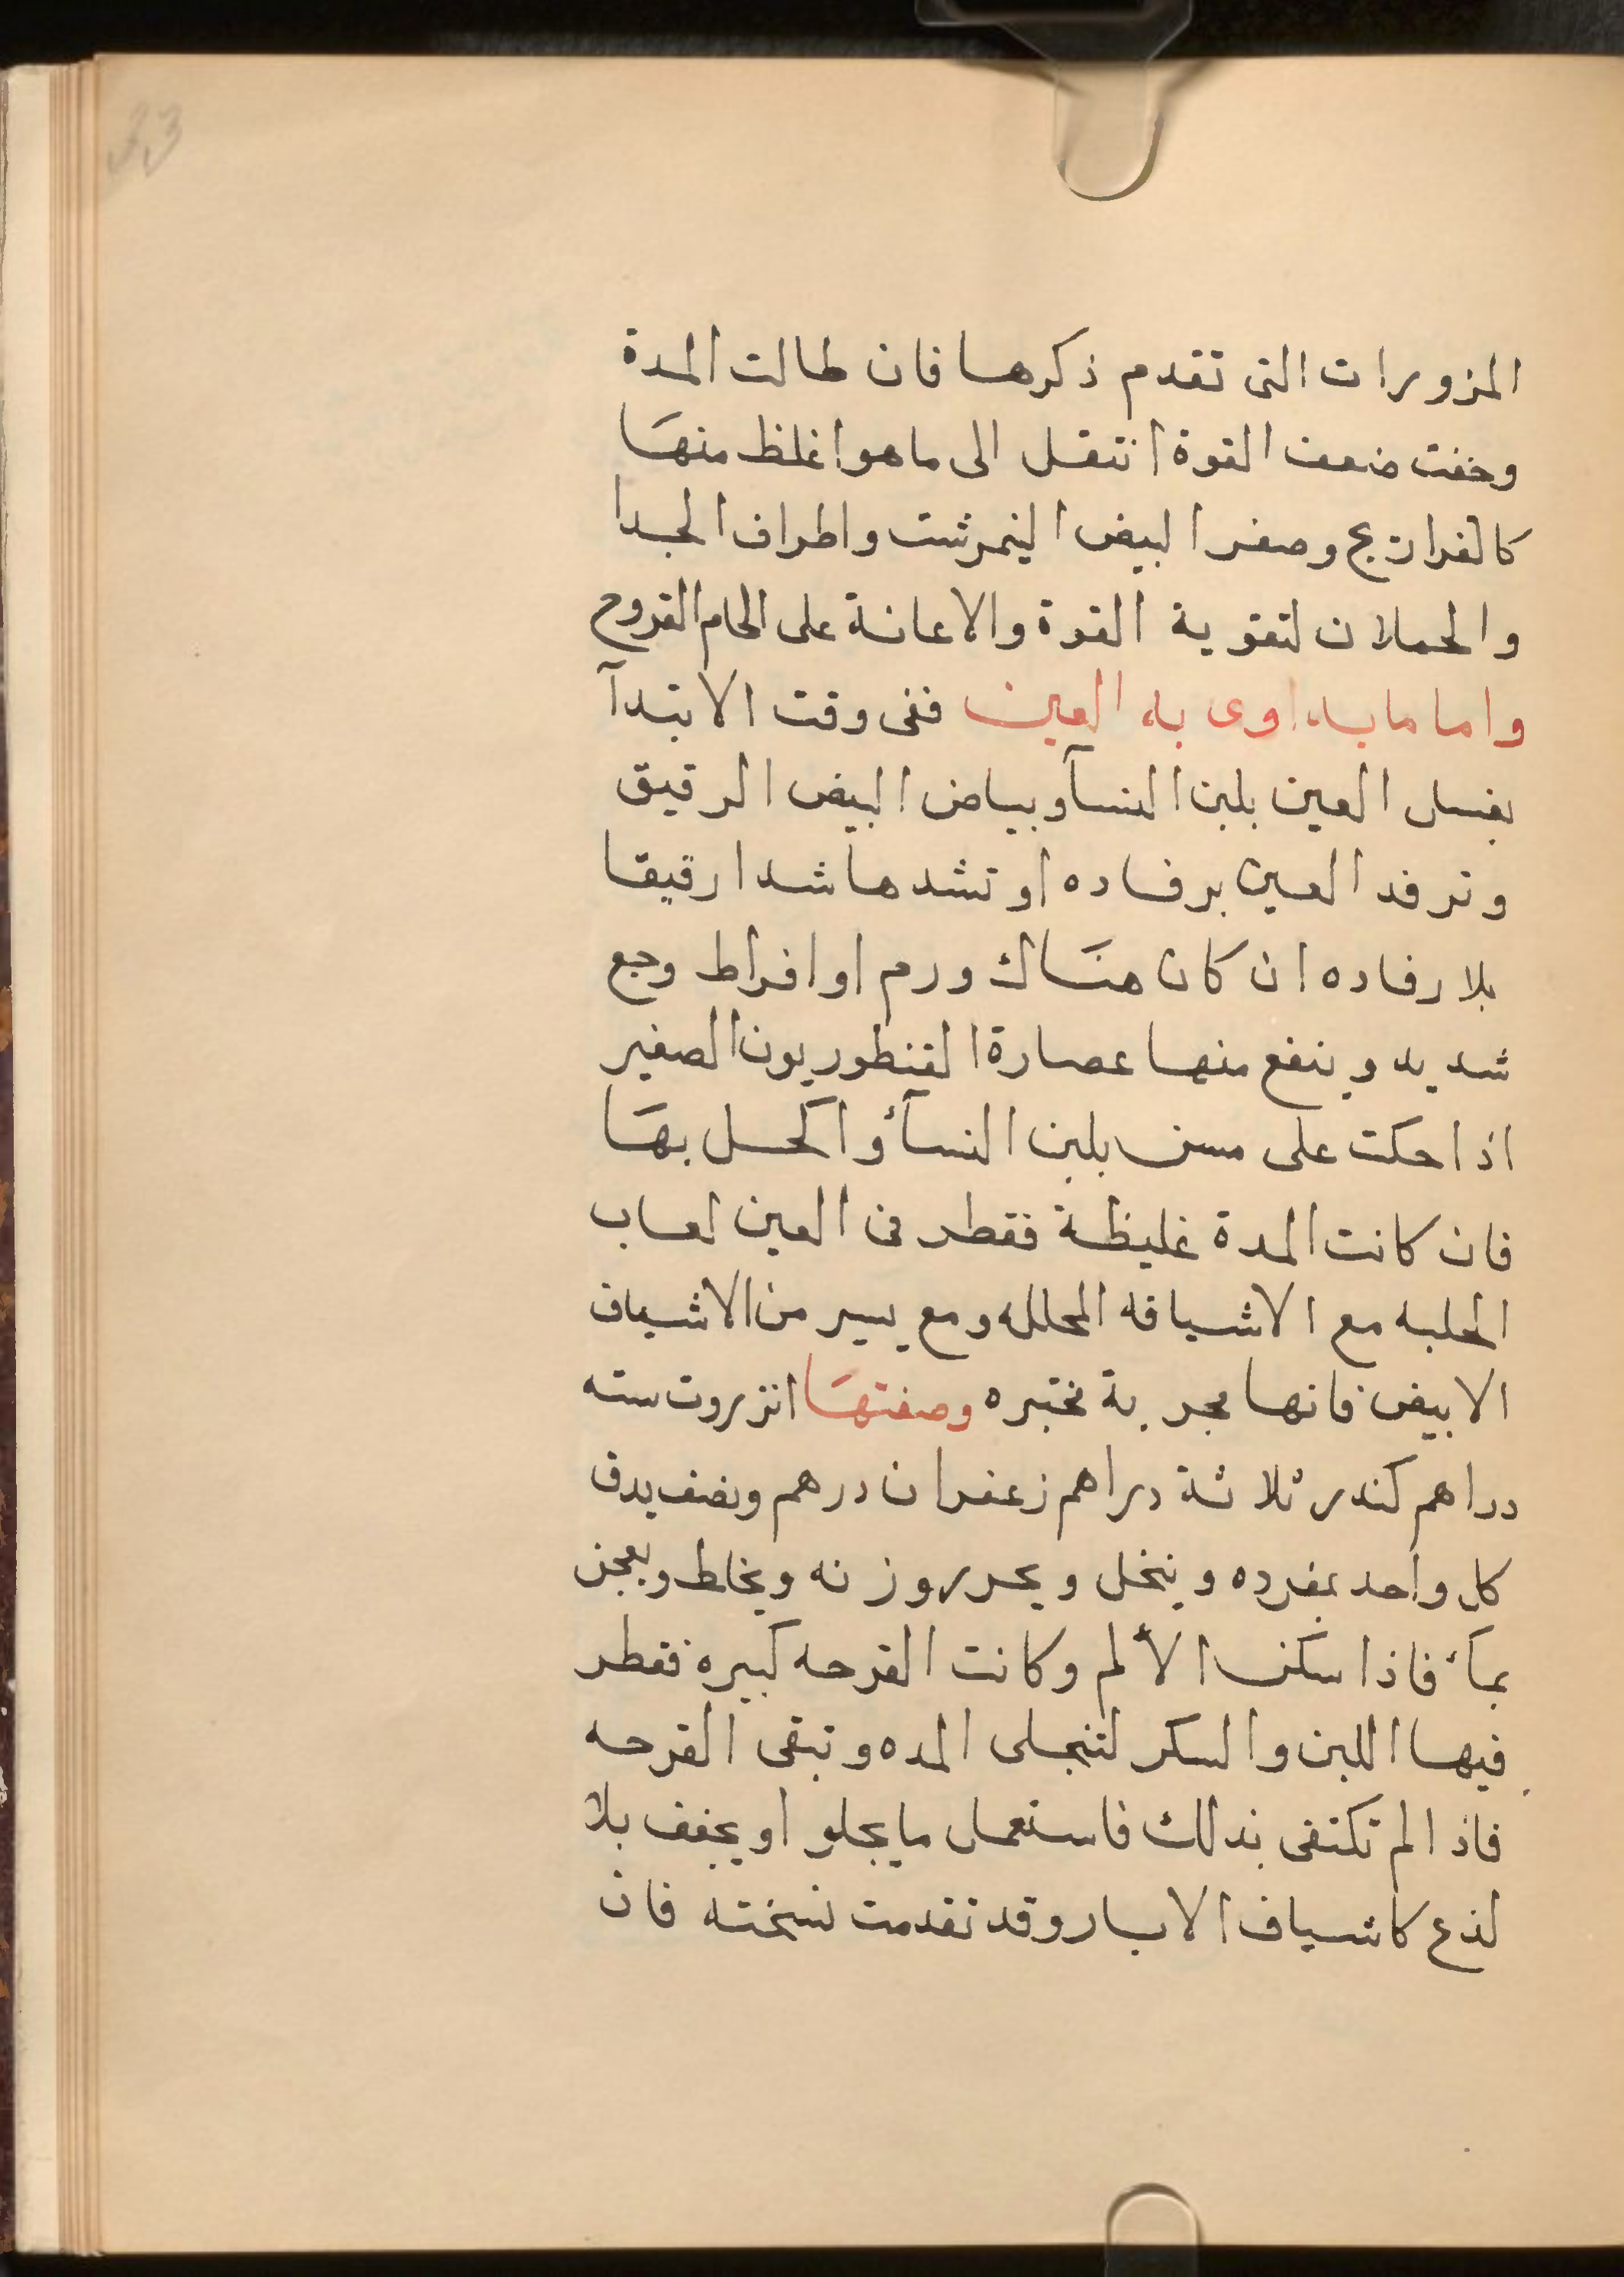 33
المزورات التى تقدم ذكرها فان طالت المدة
وخفت ضعف القوة انتقل الى ما هو اغلظ منهَا
كالفراريج وصفر البيض النيمرشت واطراف الجدا
والحملان لتقوية القوة والاعانة على الحام القروح
واما ما يداوى به العين ففى وقت الابتدآ
يغسل العين بلبن النسآ وبياض البيض الرقيق
وترفد العين برفاده او تشدها شدا رقيقا
بلا رفاده ان كان هنَاك ورم او افراط وجع
شديد وينفع منها عصارة القنطوريون الصغير
اذا حكت على مسن بلبن النسآء واكحل بهَا
فان كانت المدة غليظة فقطر فى العين لعاب
الحلبه مع الاشيافه المحلله ومع يسير من الاشياف
الابيض فانها مجربة مختبره وصفتهَا انزروت سته
دراهم كندر ثلاثة دراهم زعفران درهم ونصف يدق
كل واحد بمفرده وينخل ويحرر وزنه ويخلط ويعجن
بمآء فاذا سكن الألم وكانت القرحه كبيره فقطر
فيها اللبن والسكر لتنجلى المده وتبقى القرحه
فاذا لم تكتفى بذلك فاستعمل ما يجلو او يجفف بلا
لذع كاشياف الابار وقد تقدمت نسخته فان